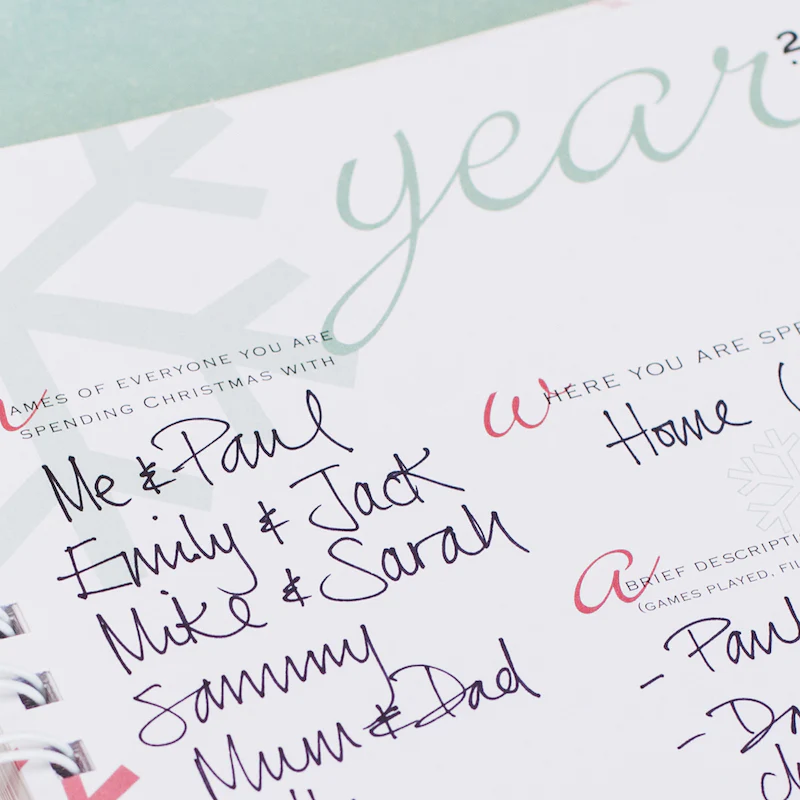 year
Names of everyone you are
spending Christmas with
Me & Paul
Emily & Jack
Mike & Sarah
Sammy
Mum & Dad
Where you are spe
Home
A brief descripti
(games played, fil
- Paul
-